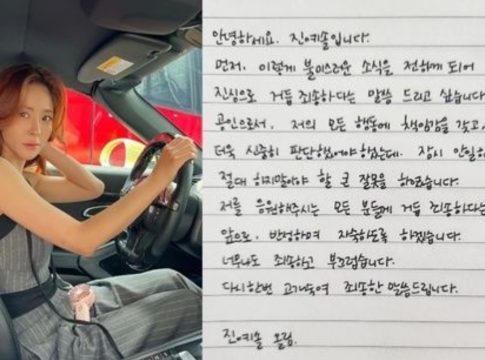 안녕하세요. 진예솔입니다.
먼저, 이렇게 불미스러운 소식을 전하게 되어
진심으로 거듭 죄송하다는 말씀 드리고 싶습니다
공인으로서, 저의 모든 행동에 책임감을 갖고,
더욱 신중히 판단했어야 했는데. 잠시 안일하
절대 하지말아야 할 큰 잘못을 하였습니다.
저를 응원해주시는 모든 분들께 거듭 죄송하다는
앞으로, 반성하며 자숙하도록 하겠습니다.
너무나도 죄송하고 부끄럽습니다.
다시한번 고개숙여 죄송한 말씀드립니다.
진예솔 올림.